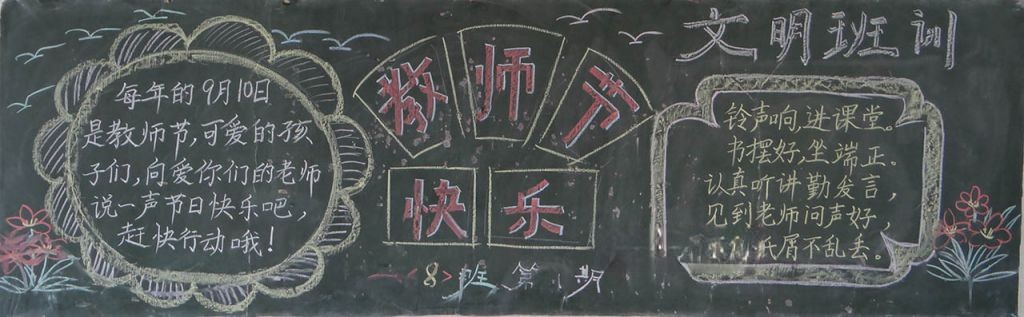 每年的9月10日
是教师节,可爱的孩
子们,向爱你们的老师
说一声节日快乐吧,
赶快行动哦!
教师节
快乐
一<8>班第1期
文明班训
铃声响,进课堂。
书摆好,坐端正。
认真听讲勤发言,
见到老师问声好,
纸屑不乱丢。